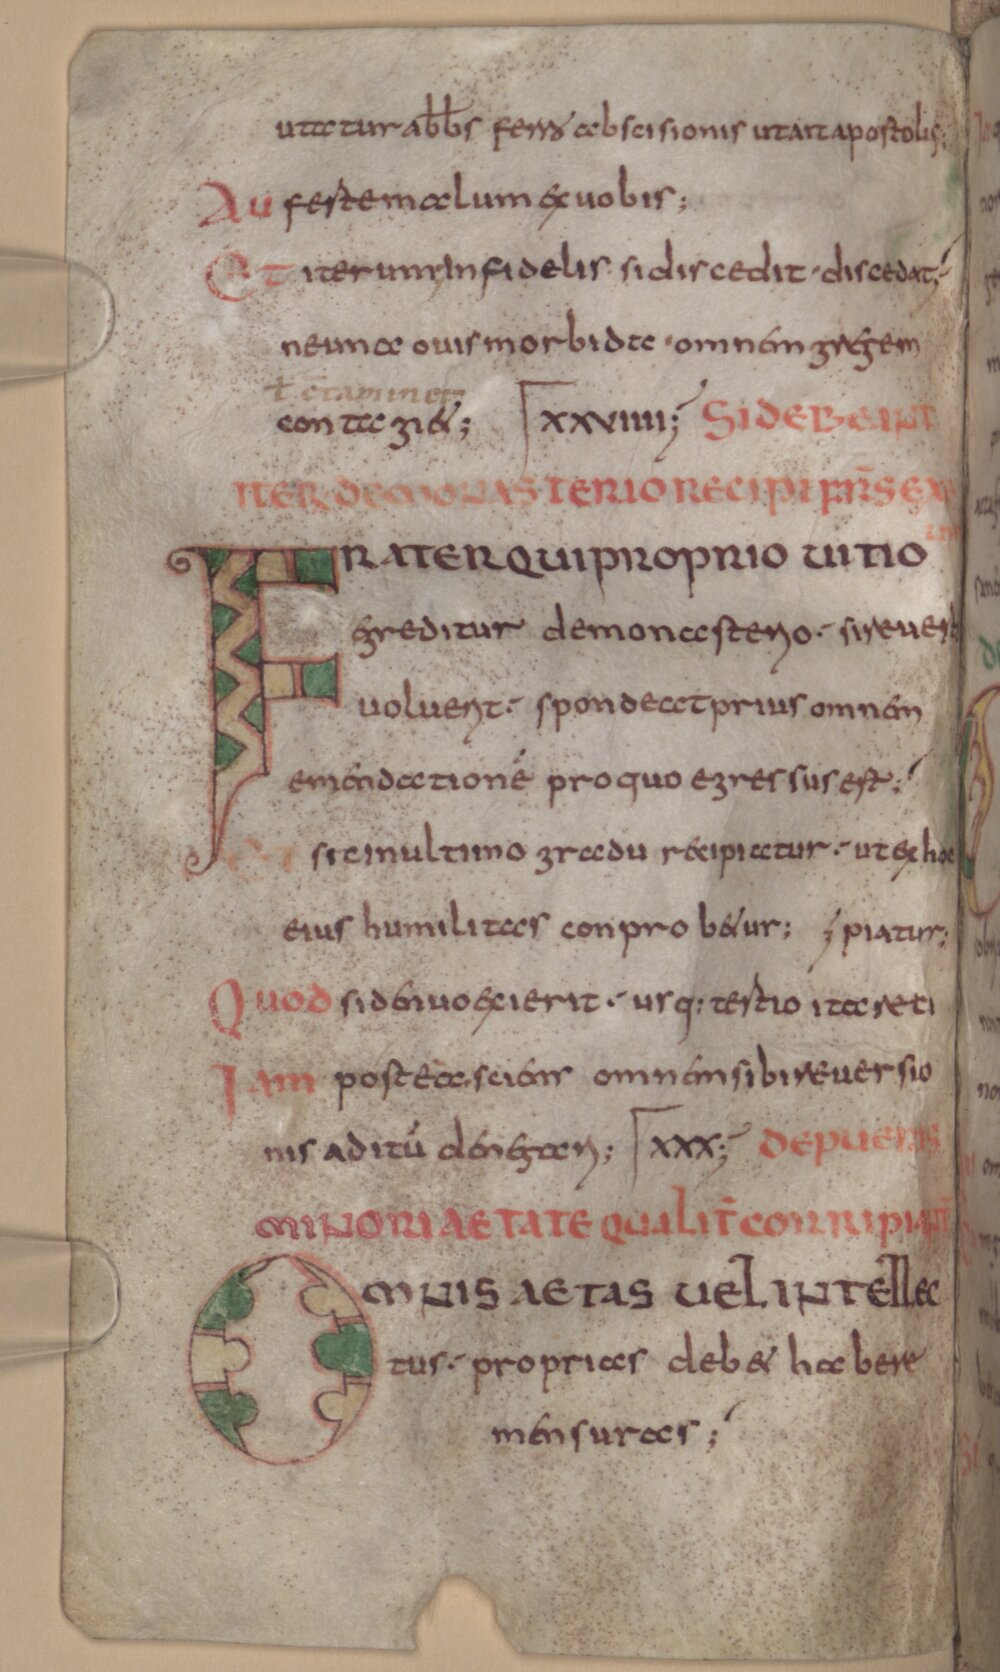 utatur abb̅s ferro abscisionis ut ait apostolus;
Auferte malum ex uobis;
Et iterum, Infidelis si discedit. discedat;
ne una ouis morbida. omnem gregem
ł c̅taminet;
contagiet; XXVIIII; SI DEBEANT
ITER. DE MONASTERIO RECIPI FR̅S EX
RATER QUI PROPRIO UITIO
egreditur de monasterio. si reuerti
uoluerit. spondeat prius omnem
emendatione̅ pro quo egressus est;
sic in ultimo gradu recipiatur. ut ex hoc
eius humilitas conprobetur; piatur;
Quod si denuo exierit. usq; tertio ita reci
Iam postea sciens omnem sibi reuersio
nis aditu̅ denegari; XXX; DE PUERIS
MINORI AETATE QUALIT̅ CORRIPIANT̅
OMNIS AETAS UEL INTELLEC
tus. proprias debet habere
mensuras;